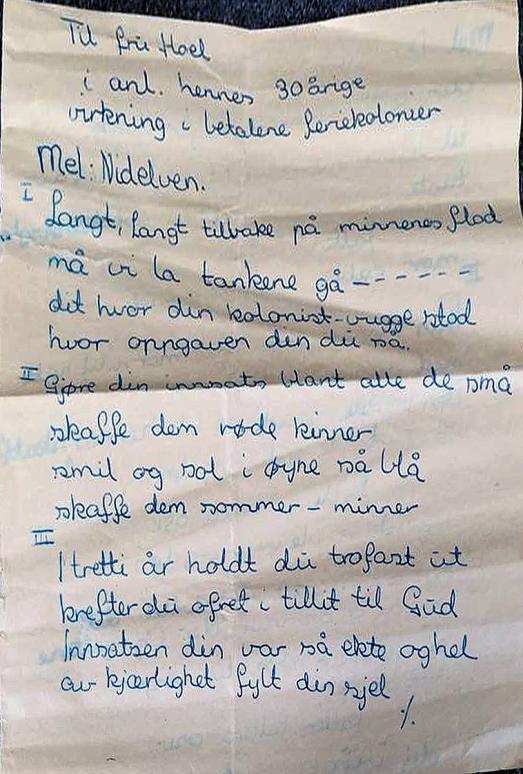 Til frü Hoel
i anl. hennes 30 årige
virkning i betalene feriekolonier
Mel: Nidelven.
I
Langt, langt tilbake på minnenes flod
må vi la tankene gå - - - - - -
dit hvor din kolonist-vugge stod
hvor oppgaven din du så.
II Gjøre din innsats blant alle de små
skaffe dem røde kinner
smil og sol i øyne så blå
skaffe dem sommer - minner
III
I tretti år holdt dü trofast üt
krefter dü ofret i tillit til Güd
Innsatsen din var så ekte og hel
av kjærlighet fylt din sjel
./.